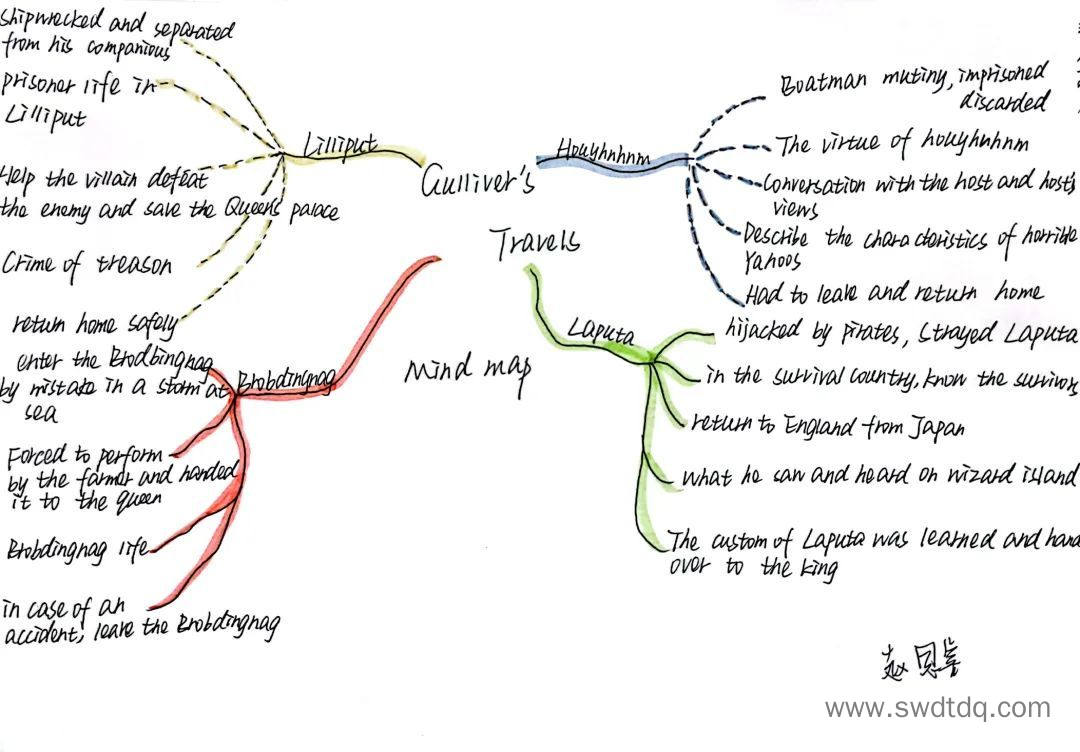 Gulliver's
Travels
Mind map
Lilliput
shipwrecked and separated
from his companious
prisoner life in
Lilliput
Help the villain defeat
the enemy and save the Queen's palace
Crime of treason
return home safely
Brobdingnag
enter the Brodbingnag
by mistake in a storm at
sea
Forced to perform
by the farmer and handed
it to the queen
Brobdingnag life
in case of an
accident, leave the Brobdingnag
Houyhnhnm
Boatman mutiny, imprisoned
discarded
The virtue of houyhnhnm
Conversation with the host and host's
views
Describe the characteristics of horrible
Yahoos
Had to leave and return home
Laputa
hijacked by pirates, strayed Laputa
in the survival country, know the survivors
return to England from Japan
what he saw and heard on wizard island
The custom of Laputa was learned and hand
over to the king
赵恩
www.swdtdq.com